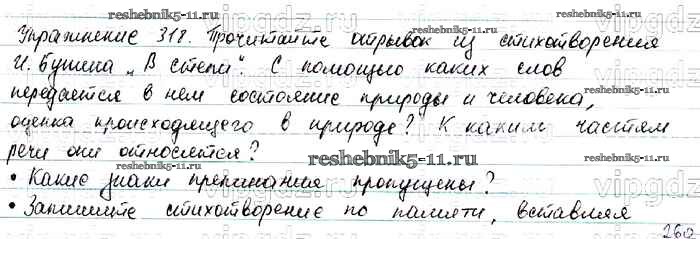 reshebnik5-11.ru
Упражнение 318. Прочитайте отрывок из стихотворения
И. Бунина „В степи". С помощью каких слов
передается в нем состояние природы и человека,
оценка происходящего в природе? К каким частям
речи они относятся?
reshebnik5-11.ru
• Какие знаки препинания пропущены?
• Запишите стихотворение по памяти, вставляя
260
vipgdz
reshebnik5-11.ru